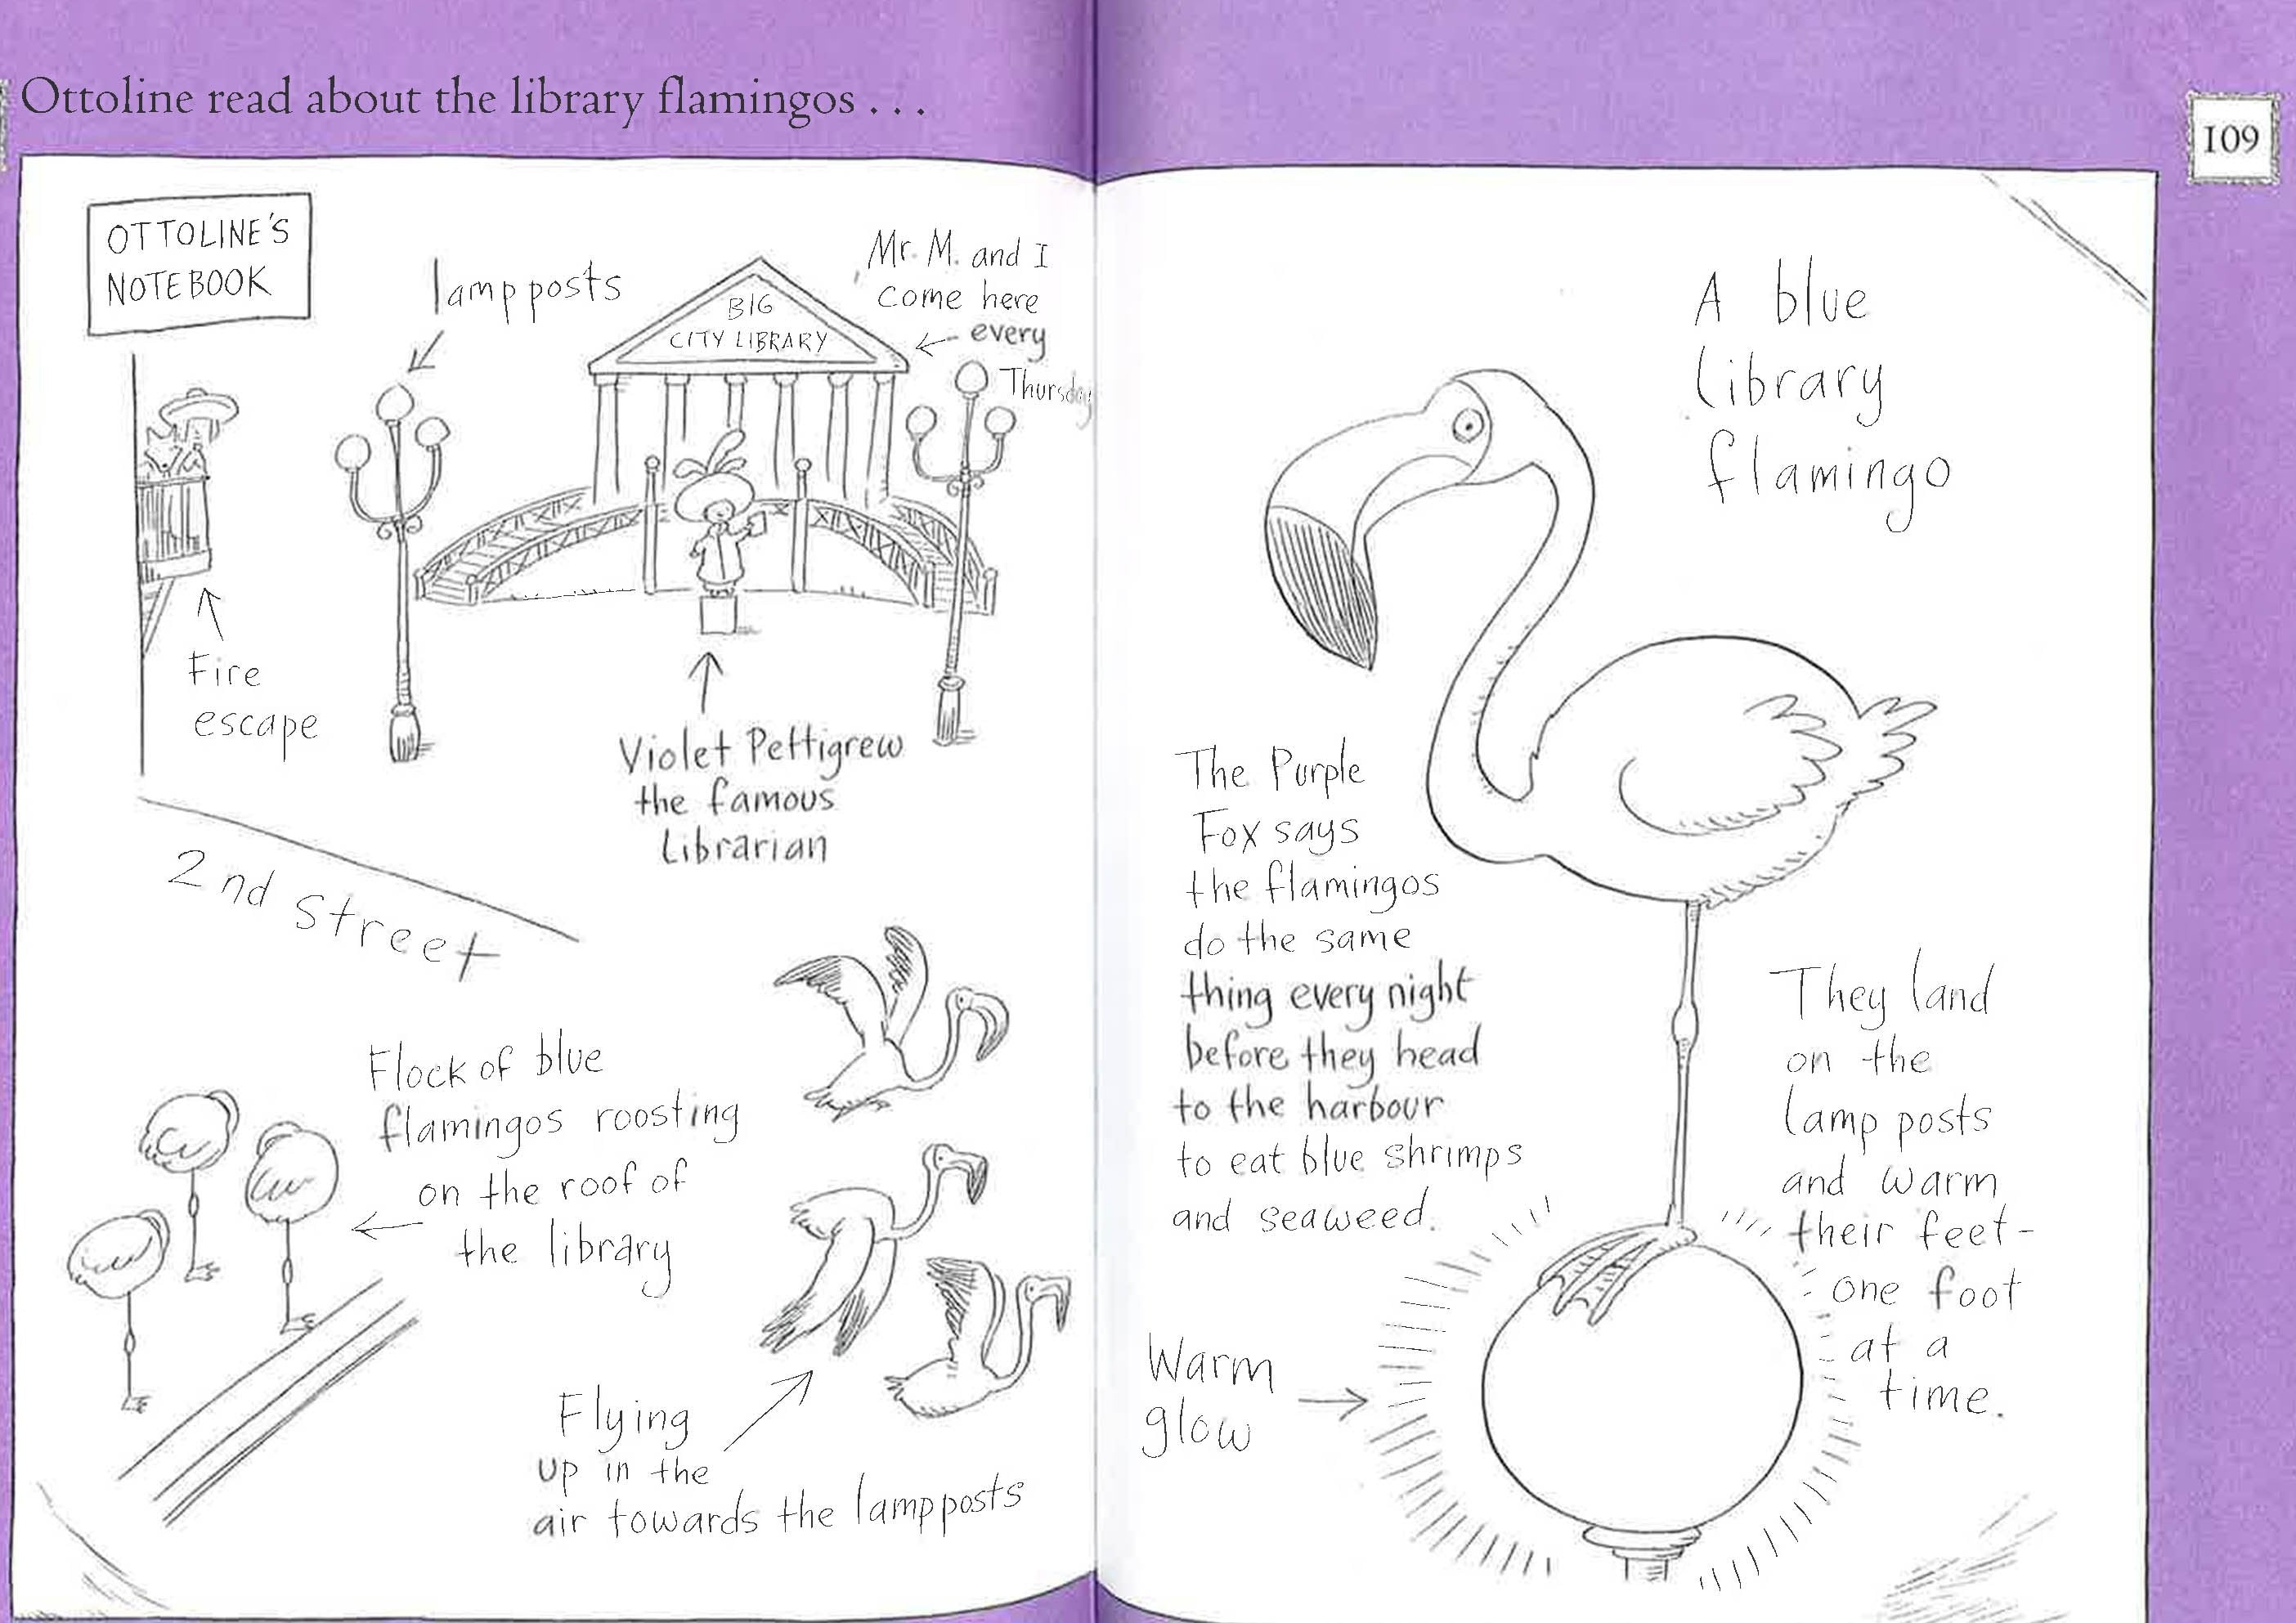 Ottoline read about the library flamingos . . .
109
OTTOLINE'S
NOTEBOOK
lamp posts
BIG
CITY LIBRARY
Mr. M. and I
come here
every
Thursday
Fire
escape
Violet Pettigrew
the famous
Librarian
2nd street
Flock of blue
flamingos roosting
on the roof of
the library
Flying
up in the
air towards the lamp posts
A blue
library
flamingo
The Purple
Fox says
the flamingos
do the same
thing every night
before they head
to the harbour
to eat blue shrimps
and seaweed.
They land
on the
lamp posts
and warm
their feet-
one foot
at a
time.
Warm
glow